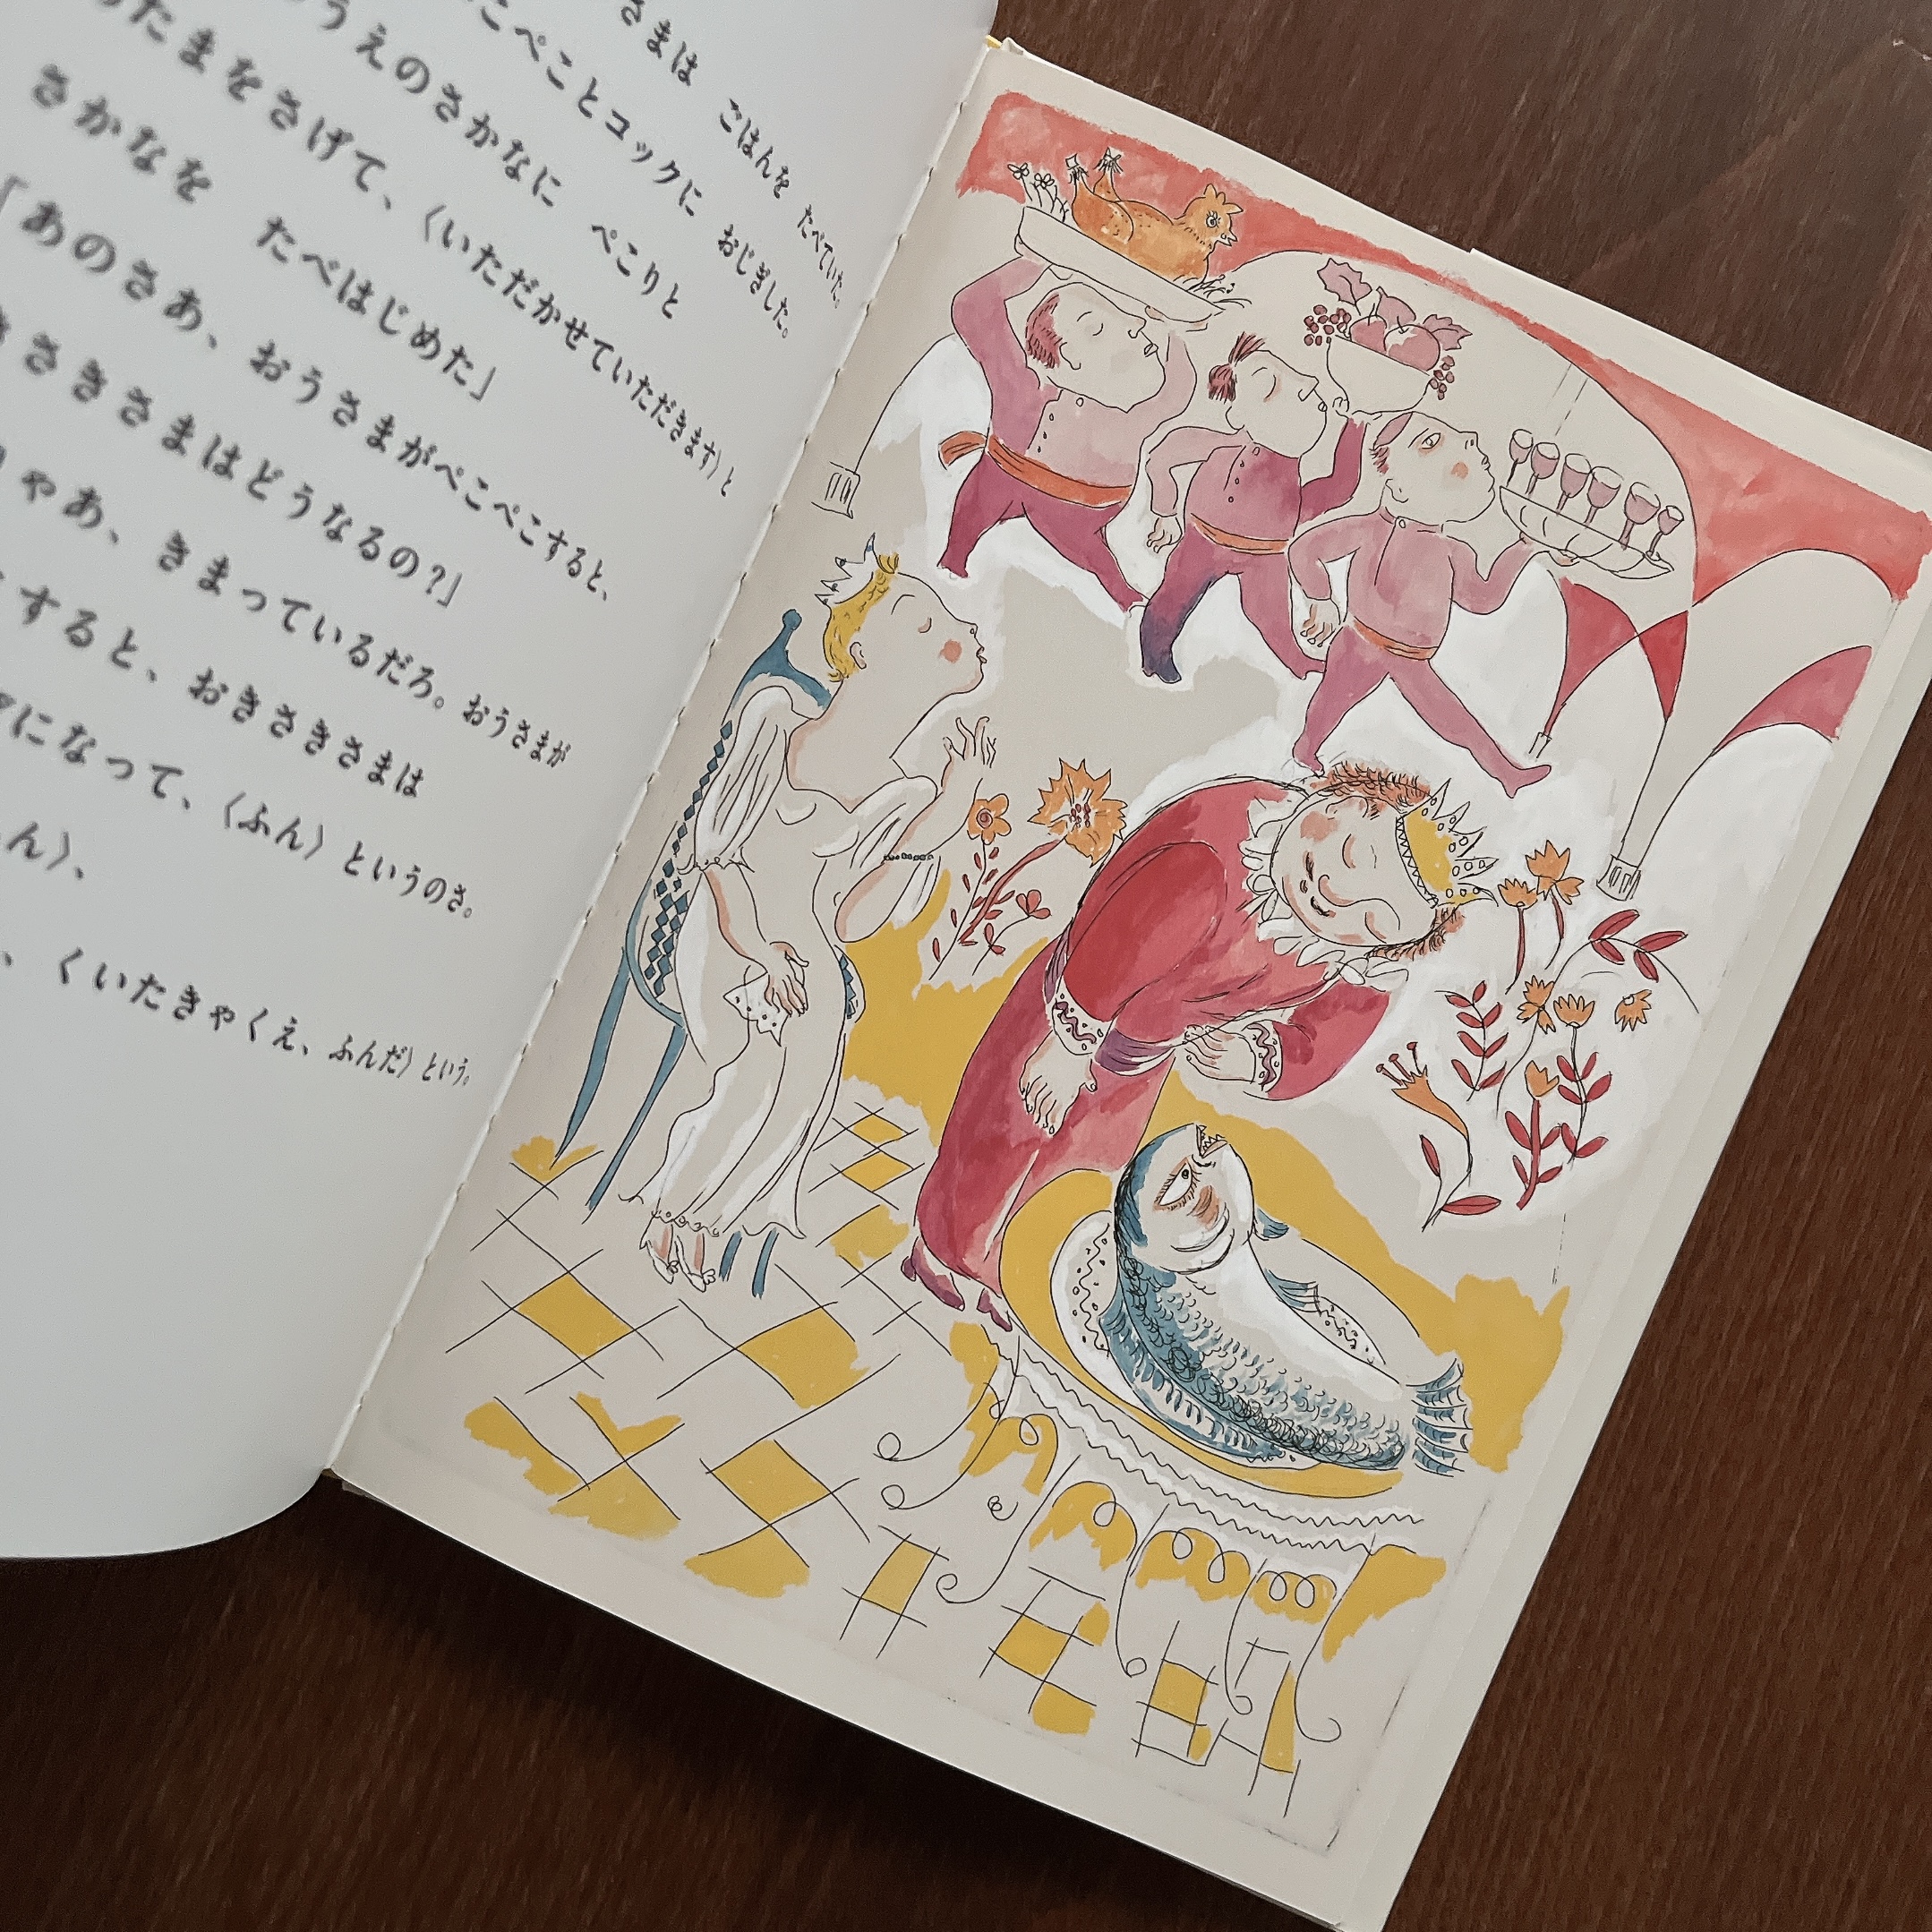 さまは ごはんを たべていた。
こぺことコックに おじぎした。
うえのさかなに ぺこりと
たまをさげて、〈いただかせていただきます〉と
さかなを たべはじめた」
「あのさあ、おうさまがぺこぺこすると、
さきさまはどうなるの?」
ゃあ、きまっているだろ。おうさまが
すると、おきさきさまは
になって、〈ふん〉というのさ。
ん〉、
、くいたきゃくえ、ふんだ〉という。